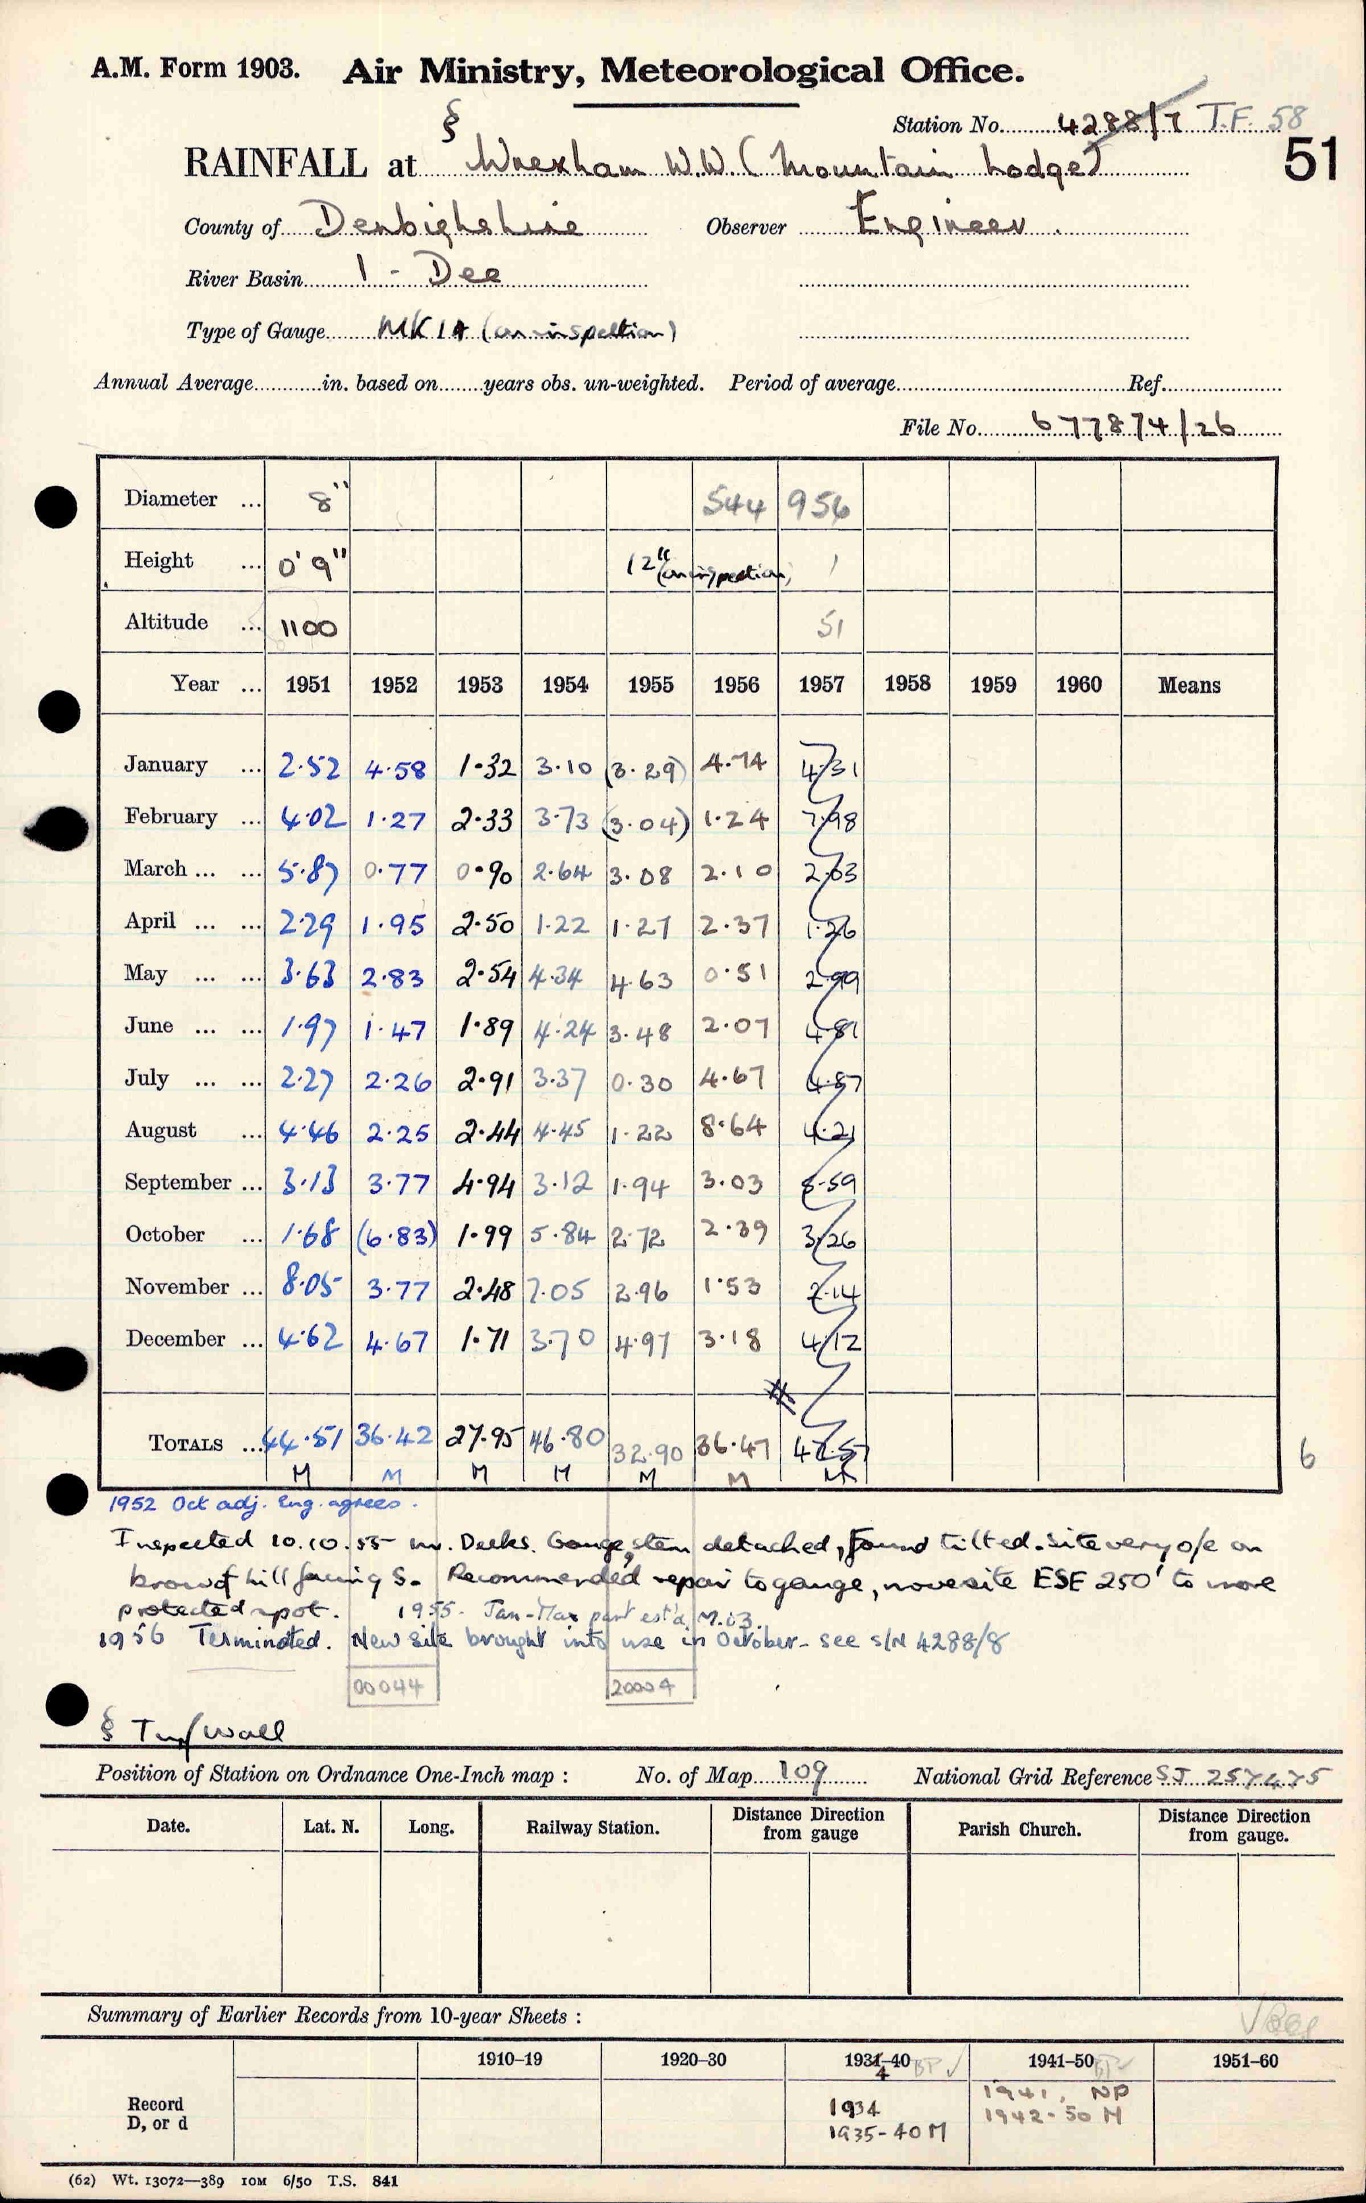 A.M. Form 1903. Air Ministry, Meteorological Office.
Station No. 4288/7 T.F. 58
51
§
RAINFALL at Wrexham W.W. (Mountain Lodge)
County of Denbighshire Observer Engineer.
River Basin 1 - Dee
Type of Gauge MK 1A (on inspection)
Annual Average in. based on years obs. un-weighted. Period of average Ref.
File No. 677874/26
Diameter ... 8" 544 956
Height ... 0' 9" 12" (on inspection) 1
Altitude ... 1100 51
Year ... 1951 1952 1953 1954 1955 1956 1957 1958 1959 1960 Means
January ... 2.52 4.58 1.32 3.10 (3.29) 4.74 4.31
February ... 4.02 1.27 2.33 3.73 (3.04) 1.24 7.98
March ... ... 5.87 0.77 0.90 2.64 3.08 2.10 2.03
April ... ... 2.29 1.95 2.50 1.22 1.27 2.37 1.26
May ... ... 3.63 2.83 2.54 4.34 4.63 0.51 2.99
June ... ... 1.97 1.47 1.89 4.24 3.48 2.07 4.81
July ... ... 2.27 2.26 2.91 3.37 0.30 4.67 4.87
August ... 4.46 2.25 2.44 4.45 1.22 8.64 4.21
September ... 3.13 3.77 4.94 3.12 1.94 3.03 5.59
October ... 1.68 (6.83) 1.99 5.84 2.72 2.39 3.26
November ... 8.05 3.77 2.48 7.05 2.96 1.53 2.14
December ... 4.62 4.67 1.71 3.70 4.97 3.18 4.12
TOTALS ... 44.51 36.42 27.95 46.80 32.90 36.47 47.57 6
M M M M M M M
1952 Oct adj. Eng. agrees.
Inspected 10.10.55 Mr. Deeks. Gauge, stem detached, found tilted. Site very o/e on
brow of hill facing S. Recommended repair to gauge, move site ESE 250' to more
protected spot. 1955. Jan-Mar part est'd, M.i3.
1956 Terminated. New site brought into use in October - see S/N 4288/8
00044 20004
§ Turf Wall
Position of Station on Ordnance One-Inch map : No. of Map 109 National Grid Reference SJ 257475
Date. Lat. N. Long. Railway Station. Distance Direction from gauge Parish Church. Distance Direction from gauge.
Summary of Earlier Records from 10-year Sheets :
1910–19 1920–30 1931–40 BP ✓ 1941–50 BP ✓ 1951–60
4
Record D, or d
1934 1941, NP
1935-40 M 1942-50 M
(62) Wt. 13072—389 10M 6/50 T.S. 841